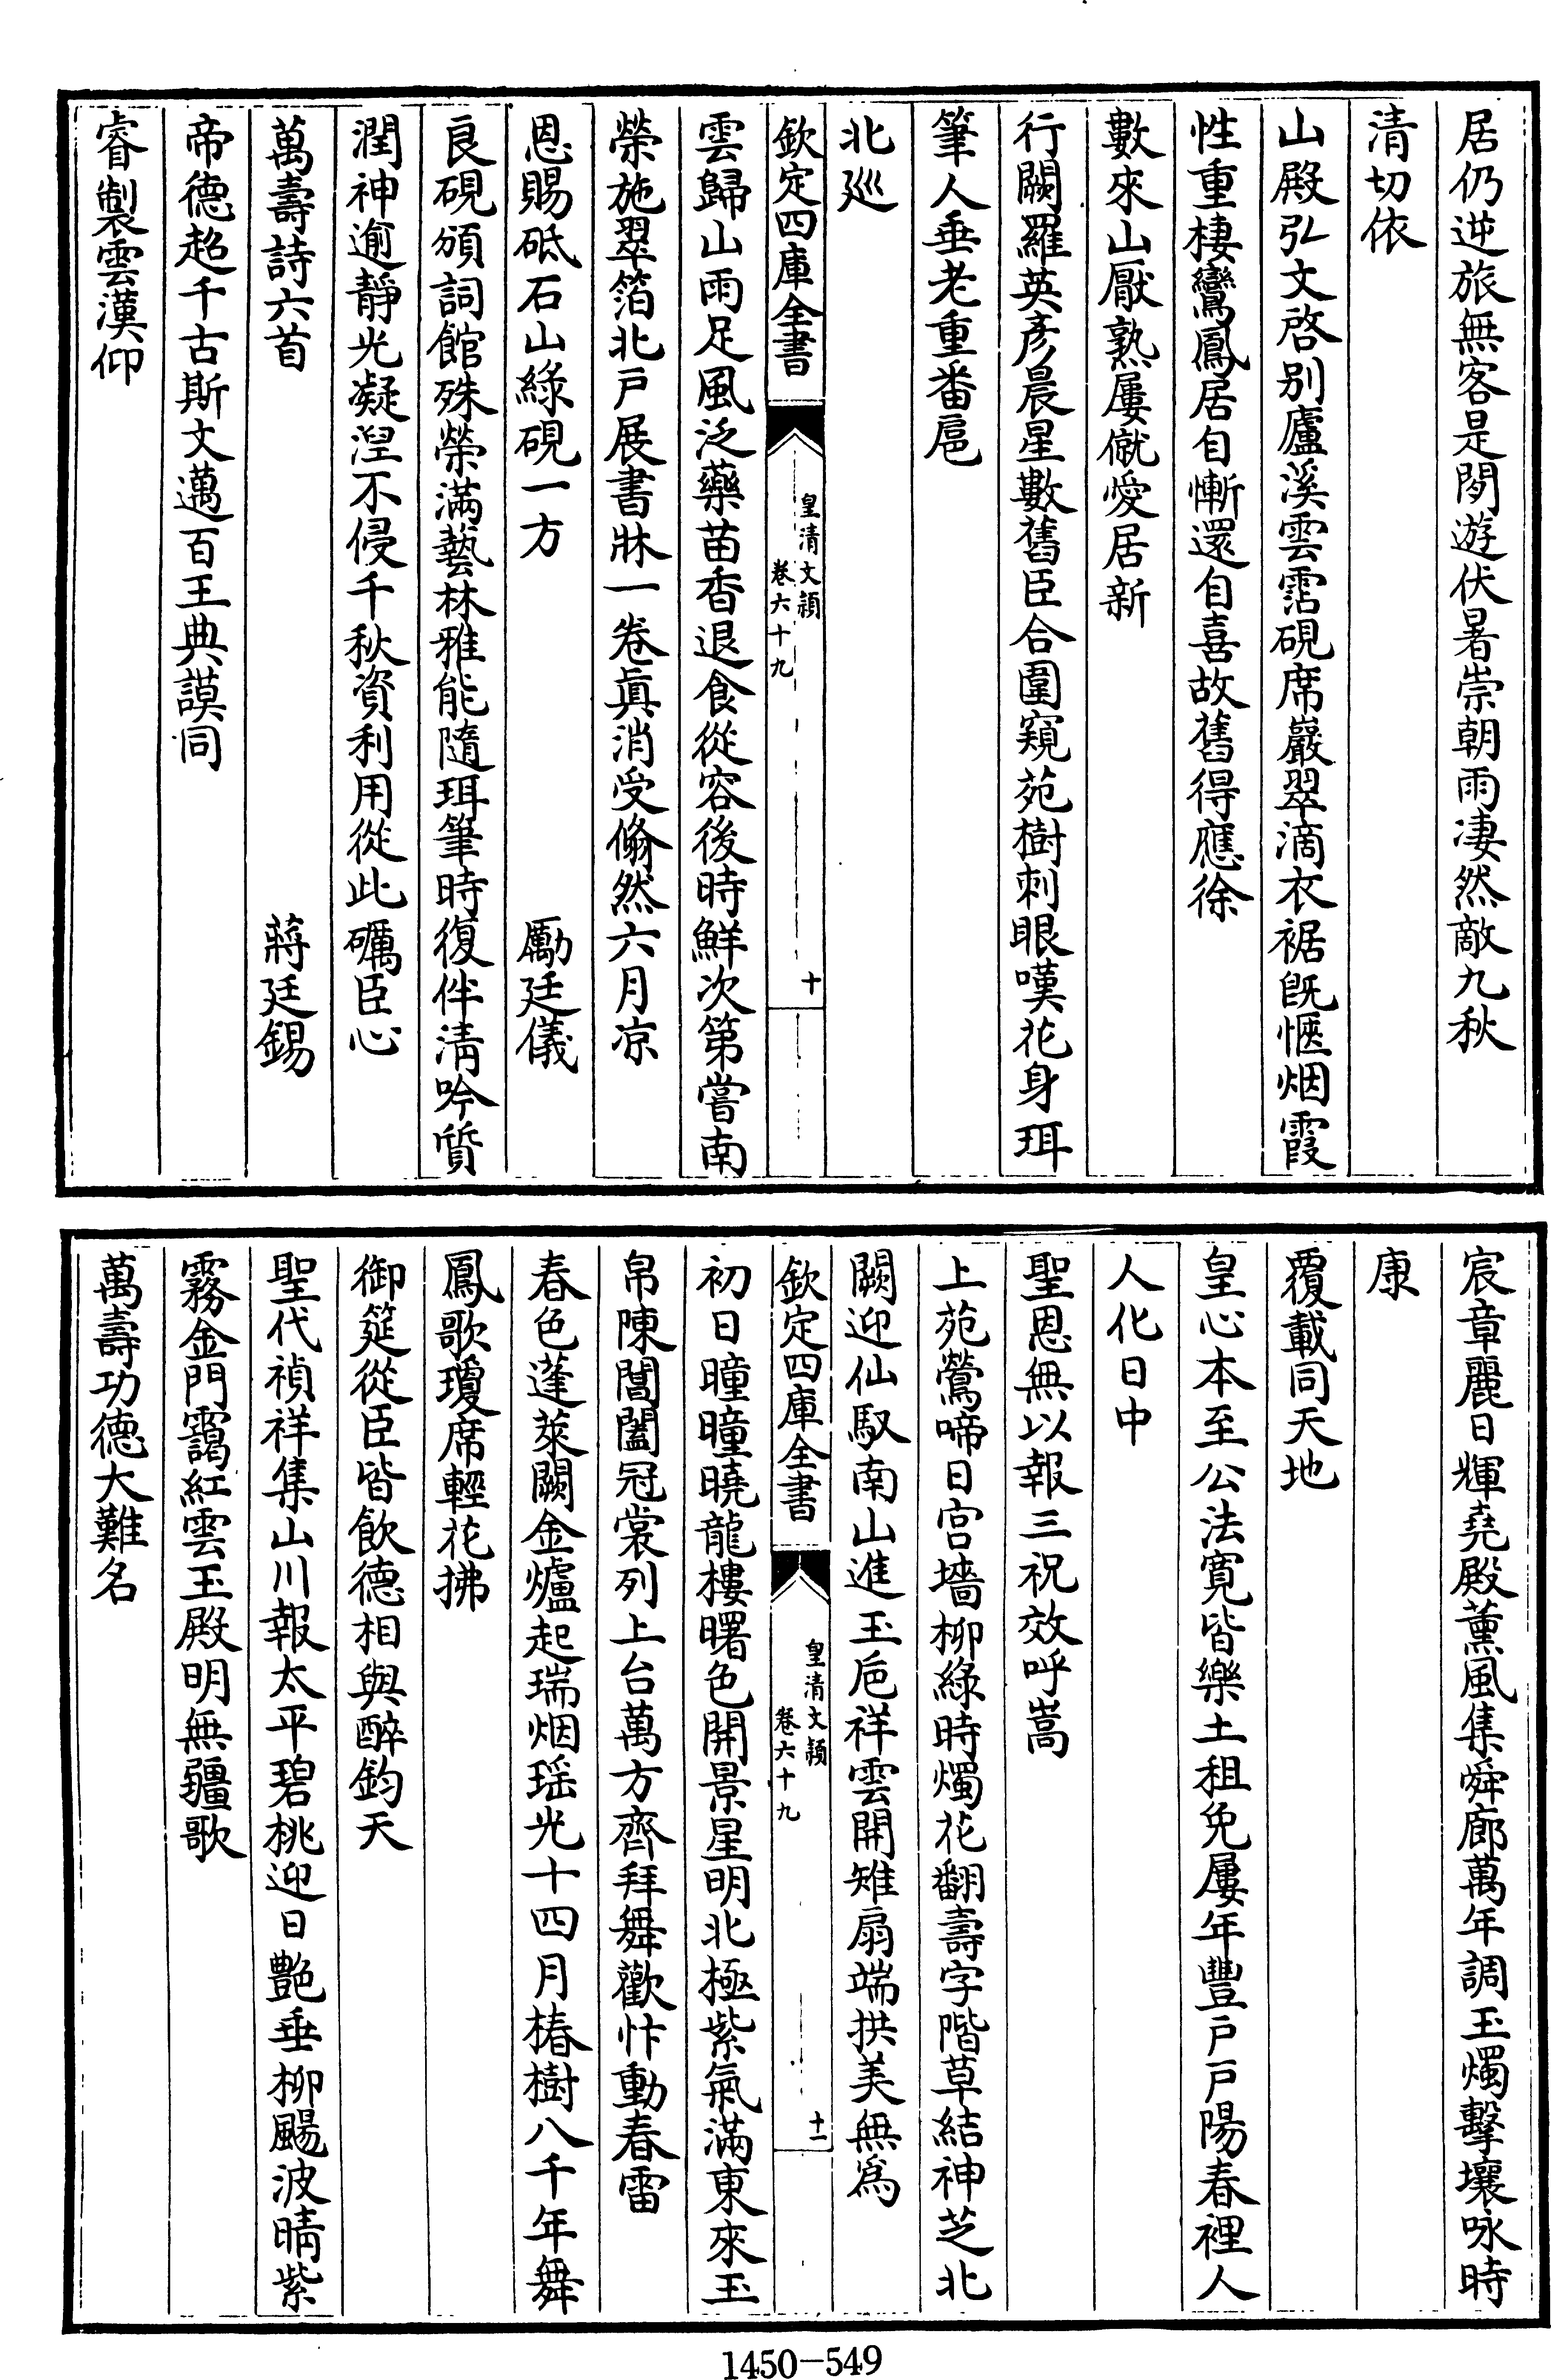 居仍逆旅無客是閒遊伏暑崇朝雨凄然敵九秋
清切依
山殿弘文啓别廬溪雲霑硯席巖翠滴衣裾旣愜烟霞
性重棲鸞鳳居自慚還自喜故舊得應徐
數來山厭熟屢僦愛居新
行闕羅英彥晨星數舊臣合圍窺苑樹刺眼嘆花身珥
筆人垂老重番扈
北廵
欽定四庫全書
皇清文穎
卷六十九
十
雲歸山雨足風泛藥苗香退食從容後時鮮次第嘗南
榮施翠箔北戸展書牀一卷眞消受翛然六月凉
恩賜砥石山綠硯一方 勵廷儀
良硯頒詞館殊榮滿藝林雅能隨珥筆時復伴清吟質
潤神逾靜光凝湼不侵千秋資利用從此礪臣心
萬壽詩六首 蔣廷錫
帝德超千古斯文邁百王典謨同
睿製雲漢仰
宸章麗日輝堯殿薰風集舜廊萬年調玉燭擊壤咏時
康
覆載同天地
皇心本至公法寛皆樂土租免屢年豐戸戸陽春裡人
人化日中
聖恩無以報三祝效呼嵩
上苑鶯啼日宫墻柳綠時燭花翻壽字階草結神芝北
闕迎仙馭南山進玉巵祥雲開雉扇端拱美無爲
欽定四庫全書
皇清文穎
卷六十九
十一
初日曈曈曉龍樓曙色開景星明北極紫氣滿東來玉
帛陳閶闔冠裳列上台萬方齊拜舞歡忭動春雷
春色蓬萊闕金爐起瑞烟瑶光十四月椿樹八千年舞
鳳歌瓊席輕花拂
御筵從臣皆飲德相與醉鈞天
聖代禎祥集山川報太平碧桃迎日艷垂柳颺波晴紫
霧金門靄紅雲玉殿明無疆歌
萬壽功德大難名
1450-549